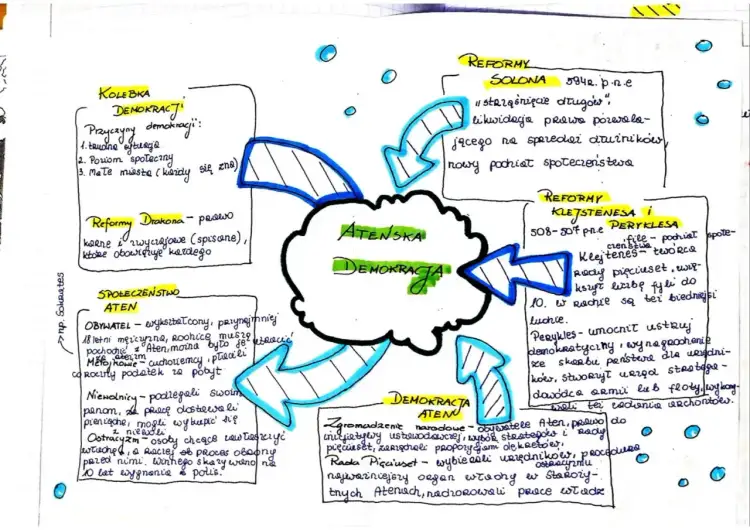 KOLEBKA
DEMOKRACJI
Przyczyny demokracji:
1. trudna sytuacja
2. Poziom społeczny
3. Małe miasta (każdy się zna)
Reformy Drakona - prawo
karne i zwyczajowe (spisane),
które obowiązuje każdego
REFORMY
SOLONA 594r. p.n.e
"strząśnięcie długów":
likwidacja prawa pozwala-
jącego na sprzedaż dłużników,
nowy podział społeczeństwa
ATEŃSKA
DEMOKRACJA
REFORMY
KLEJSTENESA i
PERYKLESA
508-507 p.n.e
file - podział społe-
czeństwa
Klejtenes - twórca
rady pięciuset, zwię-
kszył liczbę fyli do
10. w radzie są też biedniejsi
ludzie.
Perykles - umocnił ustrój
demokratyczny, wynagrodzenie
ze skarbu państwa dla urzędni-
ków, stworzył urząd stratega -
dowódca armii lub floty, wykony-
wali też zadania archontów.
SPOŁECZEŃSTWO
ATEN
OBYWATEL - wykształcony, przynajmniej
18 letni mężczyzna, rodzice muszą
pochodzić z Aten, można było je utracić
za ateizm
-> np. Sokrates
Metojkowie - cudzoziemcy, płacili
coroczny podatek za pobyt
Niewolnicy - podlegali swoim
panom, za pracę dostawali
pieniądze, mogli wykupić się
z niewoli
Ostracyzm - osoby chcące zawłaszczyć
władzę, a raczej proces obrony
przed nimi. Winnego skazywano na
10 lat wygnania z polis.
DEMOKRACJA
ATEN
Zgromadzenie narodowe - obywatele Aten, prawo do
inicjatywy ustawodawczej, wybór strategów i rady
pięciuset, zarządzali propozycjami dekretów.
Rada Pięciuset - wybierali urzędników, procedura
ostracyzmu
najważniejszy organ władzy w Staroży-
tnych Atenach, nadzorowali pracę władz